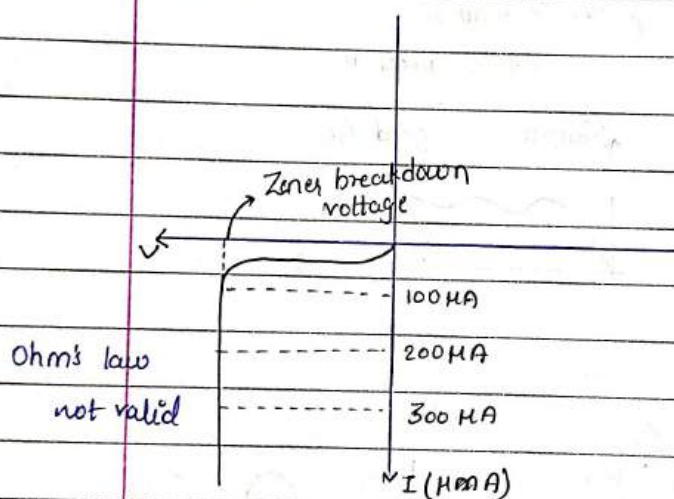 Zener breakdown
voltage
V
100 μA
Ohm's law
200 μA
not valid
300 μA
I (μA)